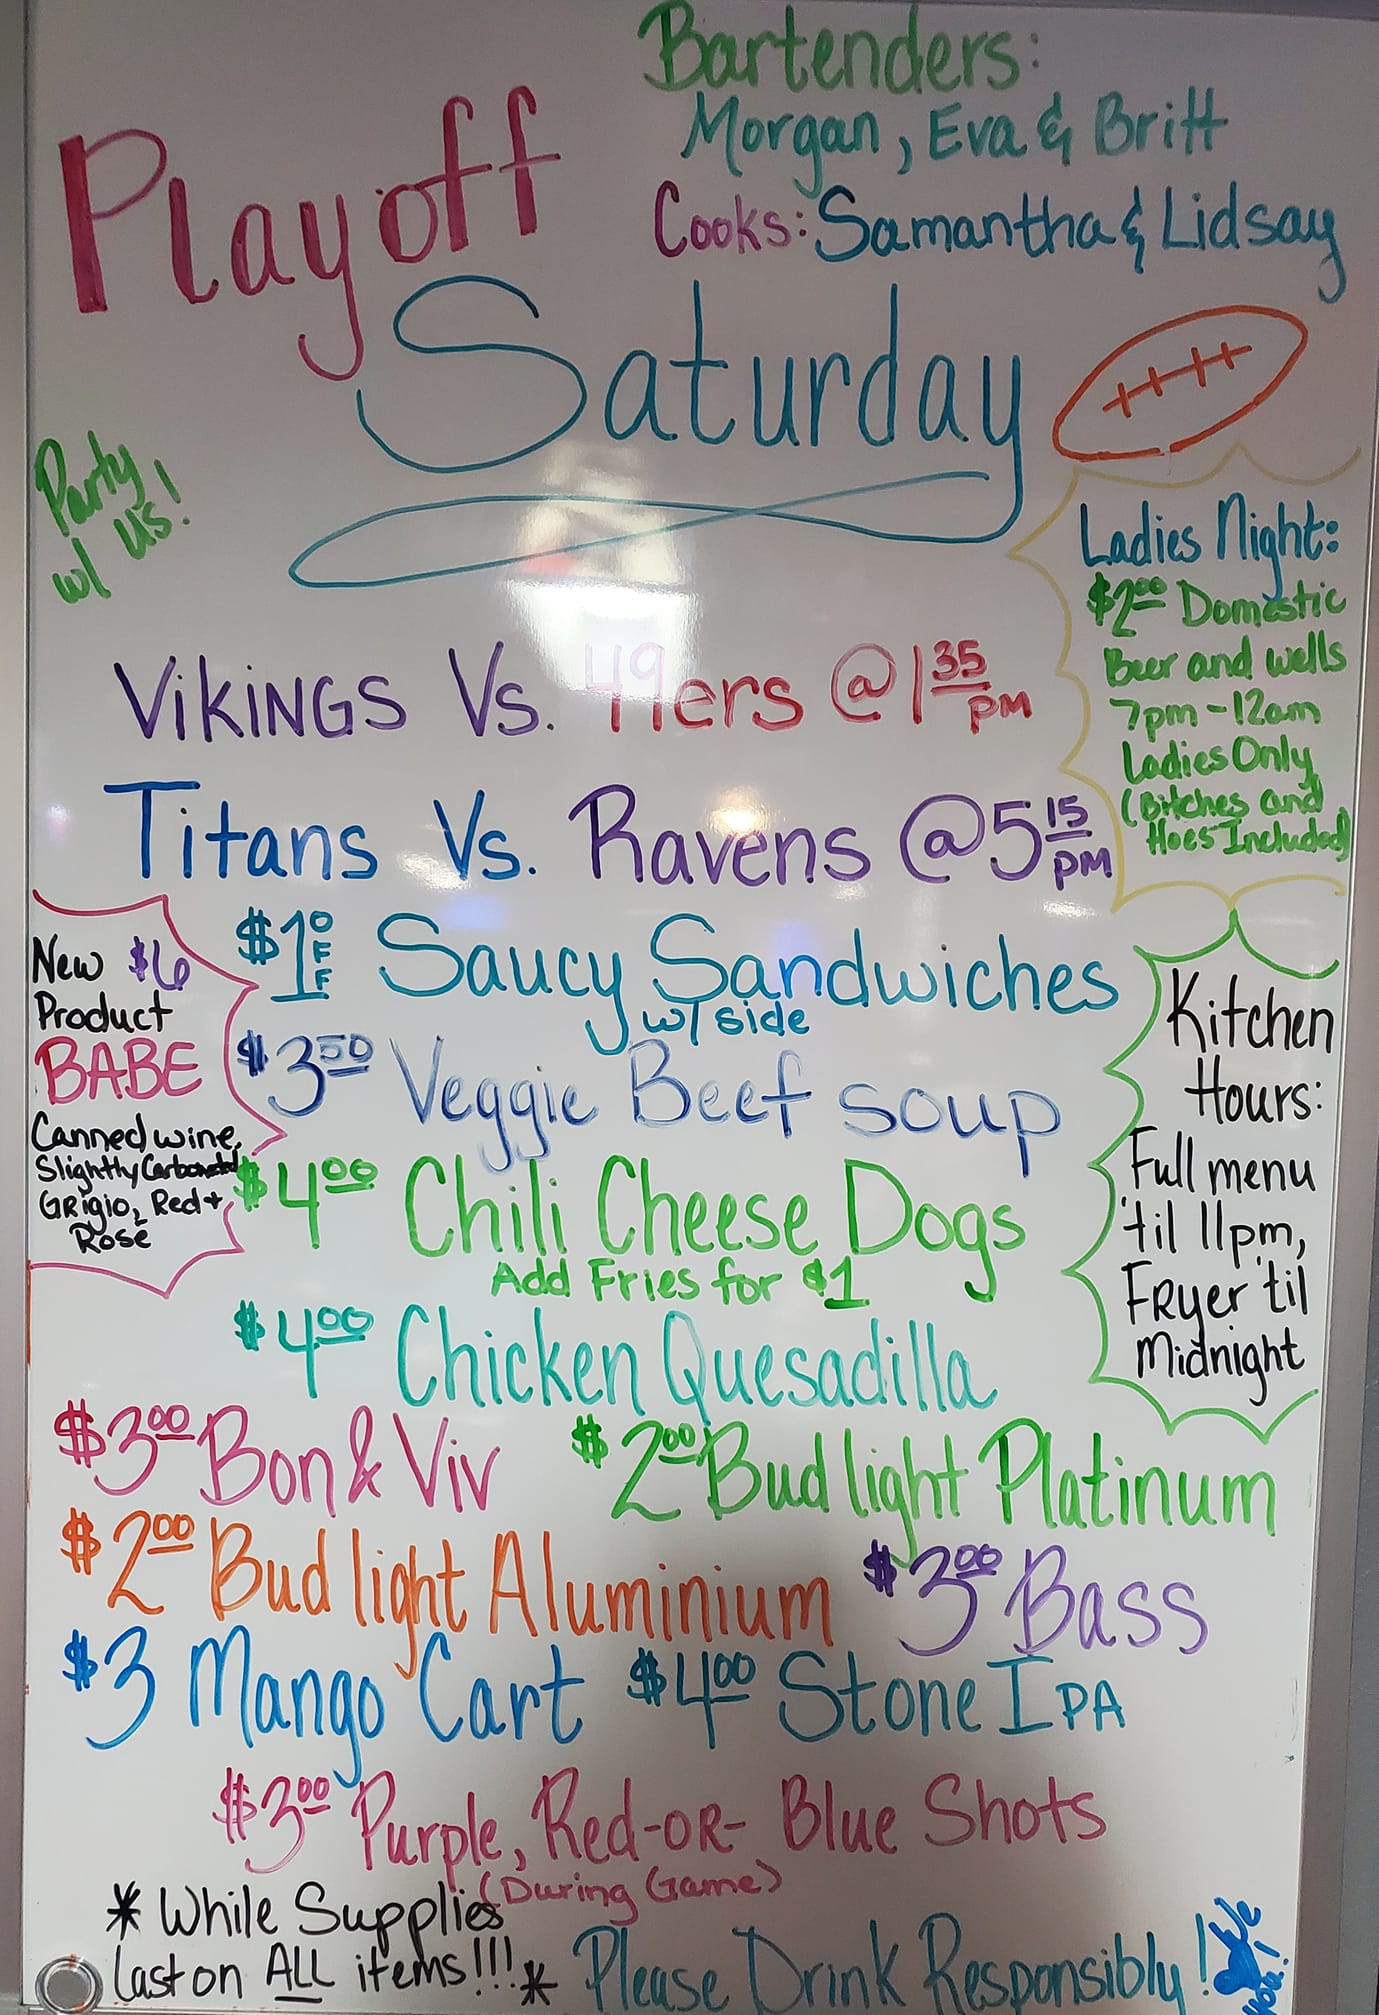 Bartenders:
Morgan, Eva & Britt
Cooks: Samantha & Lidsay
Playoff
Saturday
Party
w/ us!
Ladies Night:
$2.00 Domestic
Beer and wells
7pm - 12am
Ladies Only
(Bitches and
Hoes Included)
VIKINGS Vs. 49ers @ 1 35 PM
Titans Vs. Ravens @ 5 15 PM
New $6
Product
BABE
Canned wine,
Slightly Carbonated
GRigio, Red +
Rosé
$1 OFF Saucy Sandwiches
w/ side
$3.50 Veggie Beef soup
$4.00 Chili Cheese Dogs
Add Fries for $1
$4.00 Chicken Quesadilla
Kitchen
Hours:
Full menu
'til 11pm,
FRyer 'til
Midnight
$3.00 Bon & Viv $2.00 Bud light Platinum
$2.00 Bud light Aluminium $3.00 Bass
$3 Mango Cart $4.00 Stone IPA
$3.00 Purple, Red -OR- Blue Shots
(During Game)
* While Supplies
last on ALL items!!! *
Please Drink Responsibly!
We
you!